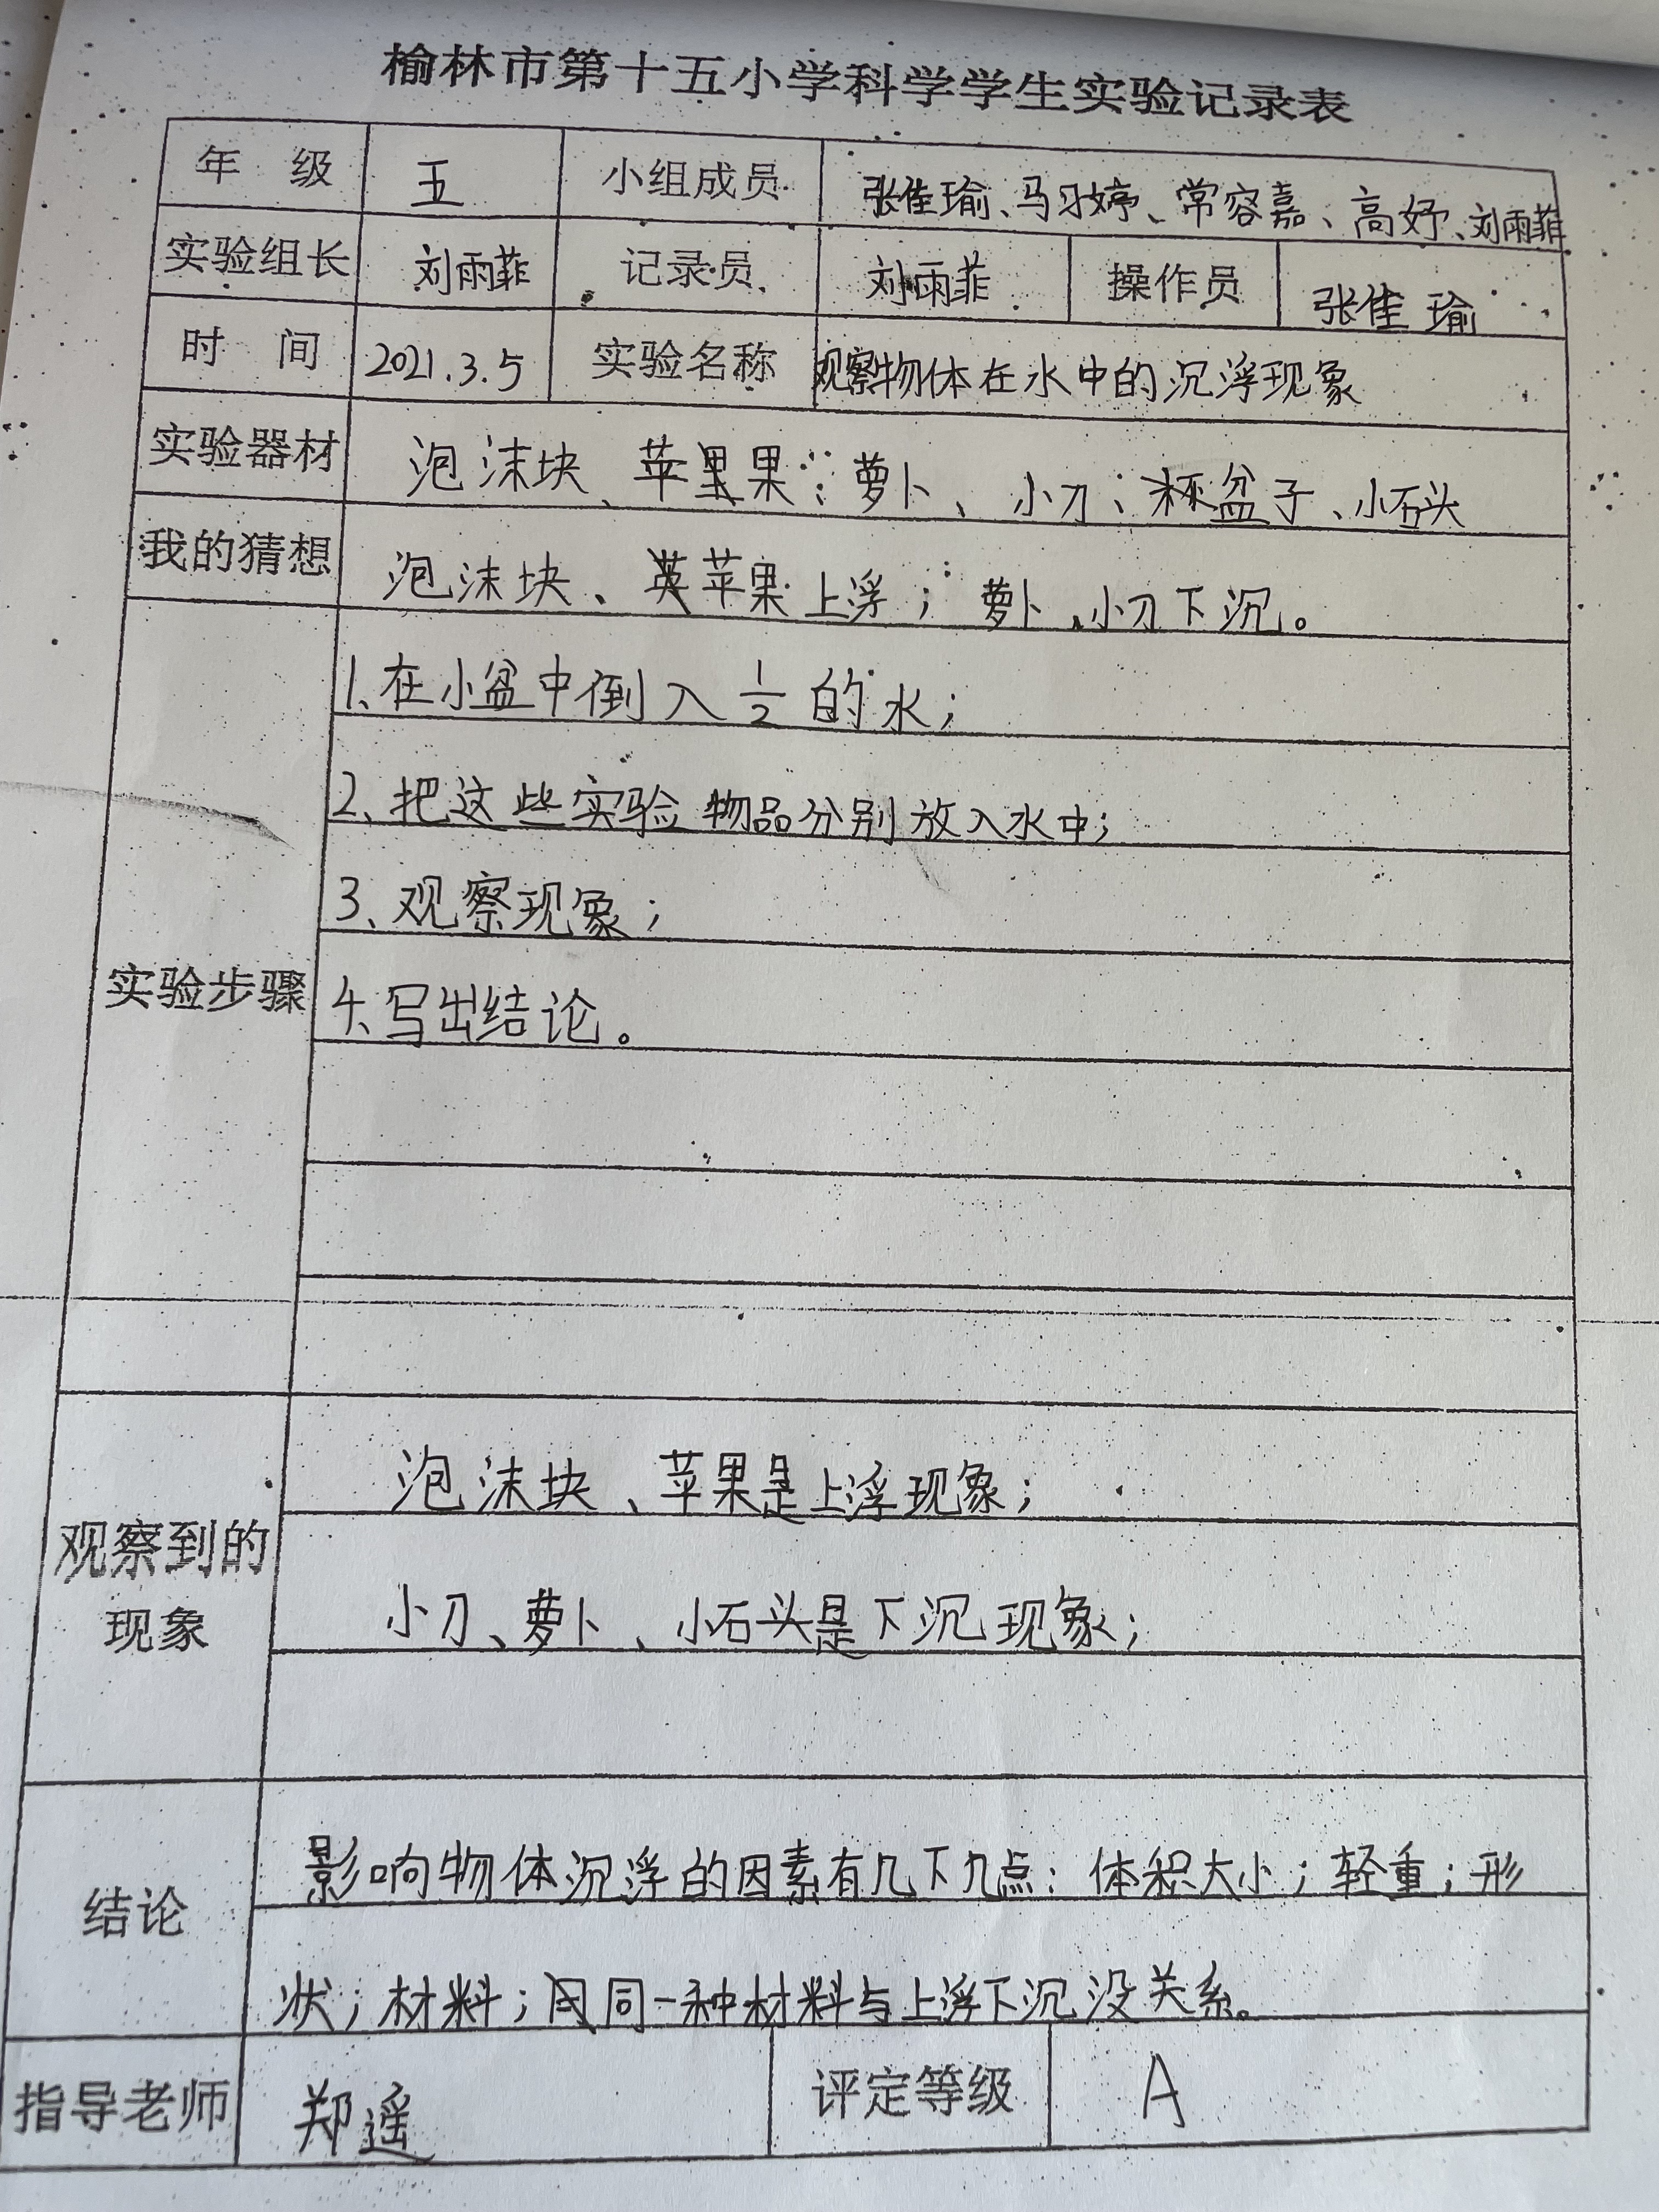 榆林市第十五小学科学学生实验记录表
年 级 五 小组成员 张佳瑜、马习婷、常容嘉、高妤、刘雨菲
实验组长 刘雨菲 记录员 刘雨菲 操作员 张佳瑜
时 间 2021.3.5 实验名称 观察物体在水中的沉浮现象
实验器材 泡沫块、苹果、萝卜、小刀、盆子、小石头
我的猜想 泡沫块、苹果上浮；萝卜、小刀下沉。
1、在小盆中倒入1/2的水；
2、把这些实验物品分别放入水中；
3、观察现象；
实验步骤 4、写出结论。
泡沫块、苹果是上浮现象；
观察到的
现象
小刀、萝卜、小石头是下沉现象；
影响物体沉浮的因素有几下几点：体积大小；轻重；形
结论
状；材料；同一种材料与上浮下沉没关系。
指导老师 郑遥 评定等级 A